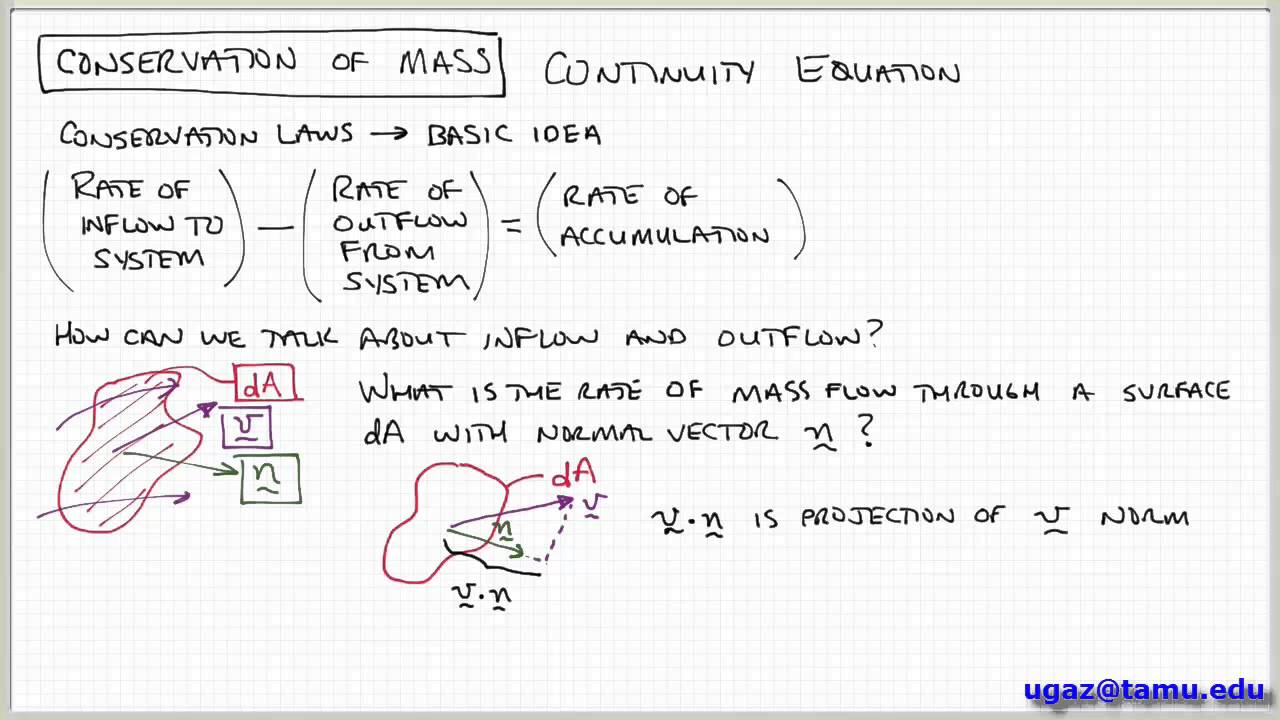 CONSERVATION OF MASS CONTINUITY EQUATION
CONSERVATION LAWS → BASIC IDEA
(RATE OF INFLOW TO SYSTEM) — (RATE OF OUTFLOW FROM SYSTEM) = (RATE OF ACCUMULATION)
HOW CAN WE TALK ABOUT INFLOW AND OUTFLOW?
dA
v
n
WHAT IS THE RATE OF MASS FLOW THROUGH A SURFACE
dA WITH NORMAL VECTOR n ?
dA
v
n
v · n
v · n IS PROJECTION OF v NORM
ugaz@tamu.edu